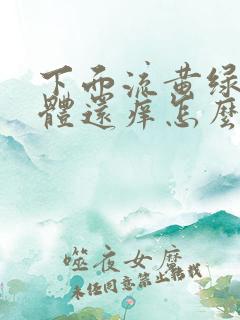 下面流黄绿
體還痒怎麼
噬夜女麽
未经同意禁止转载